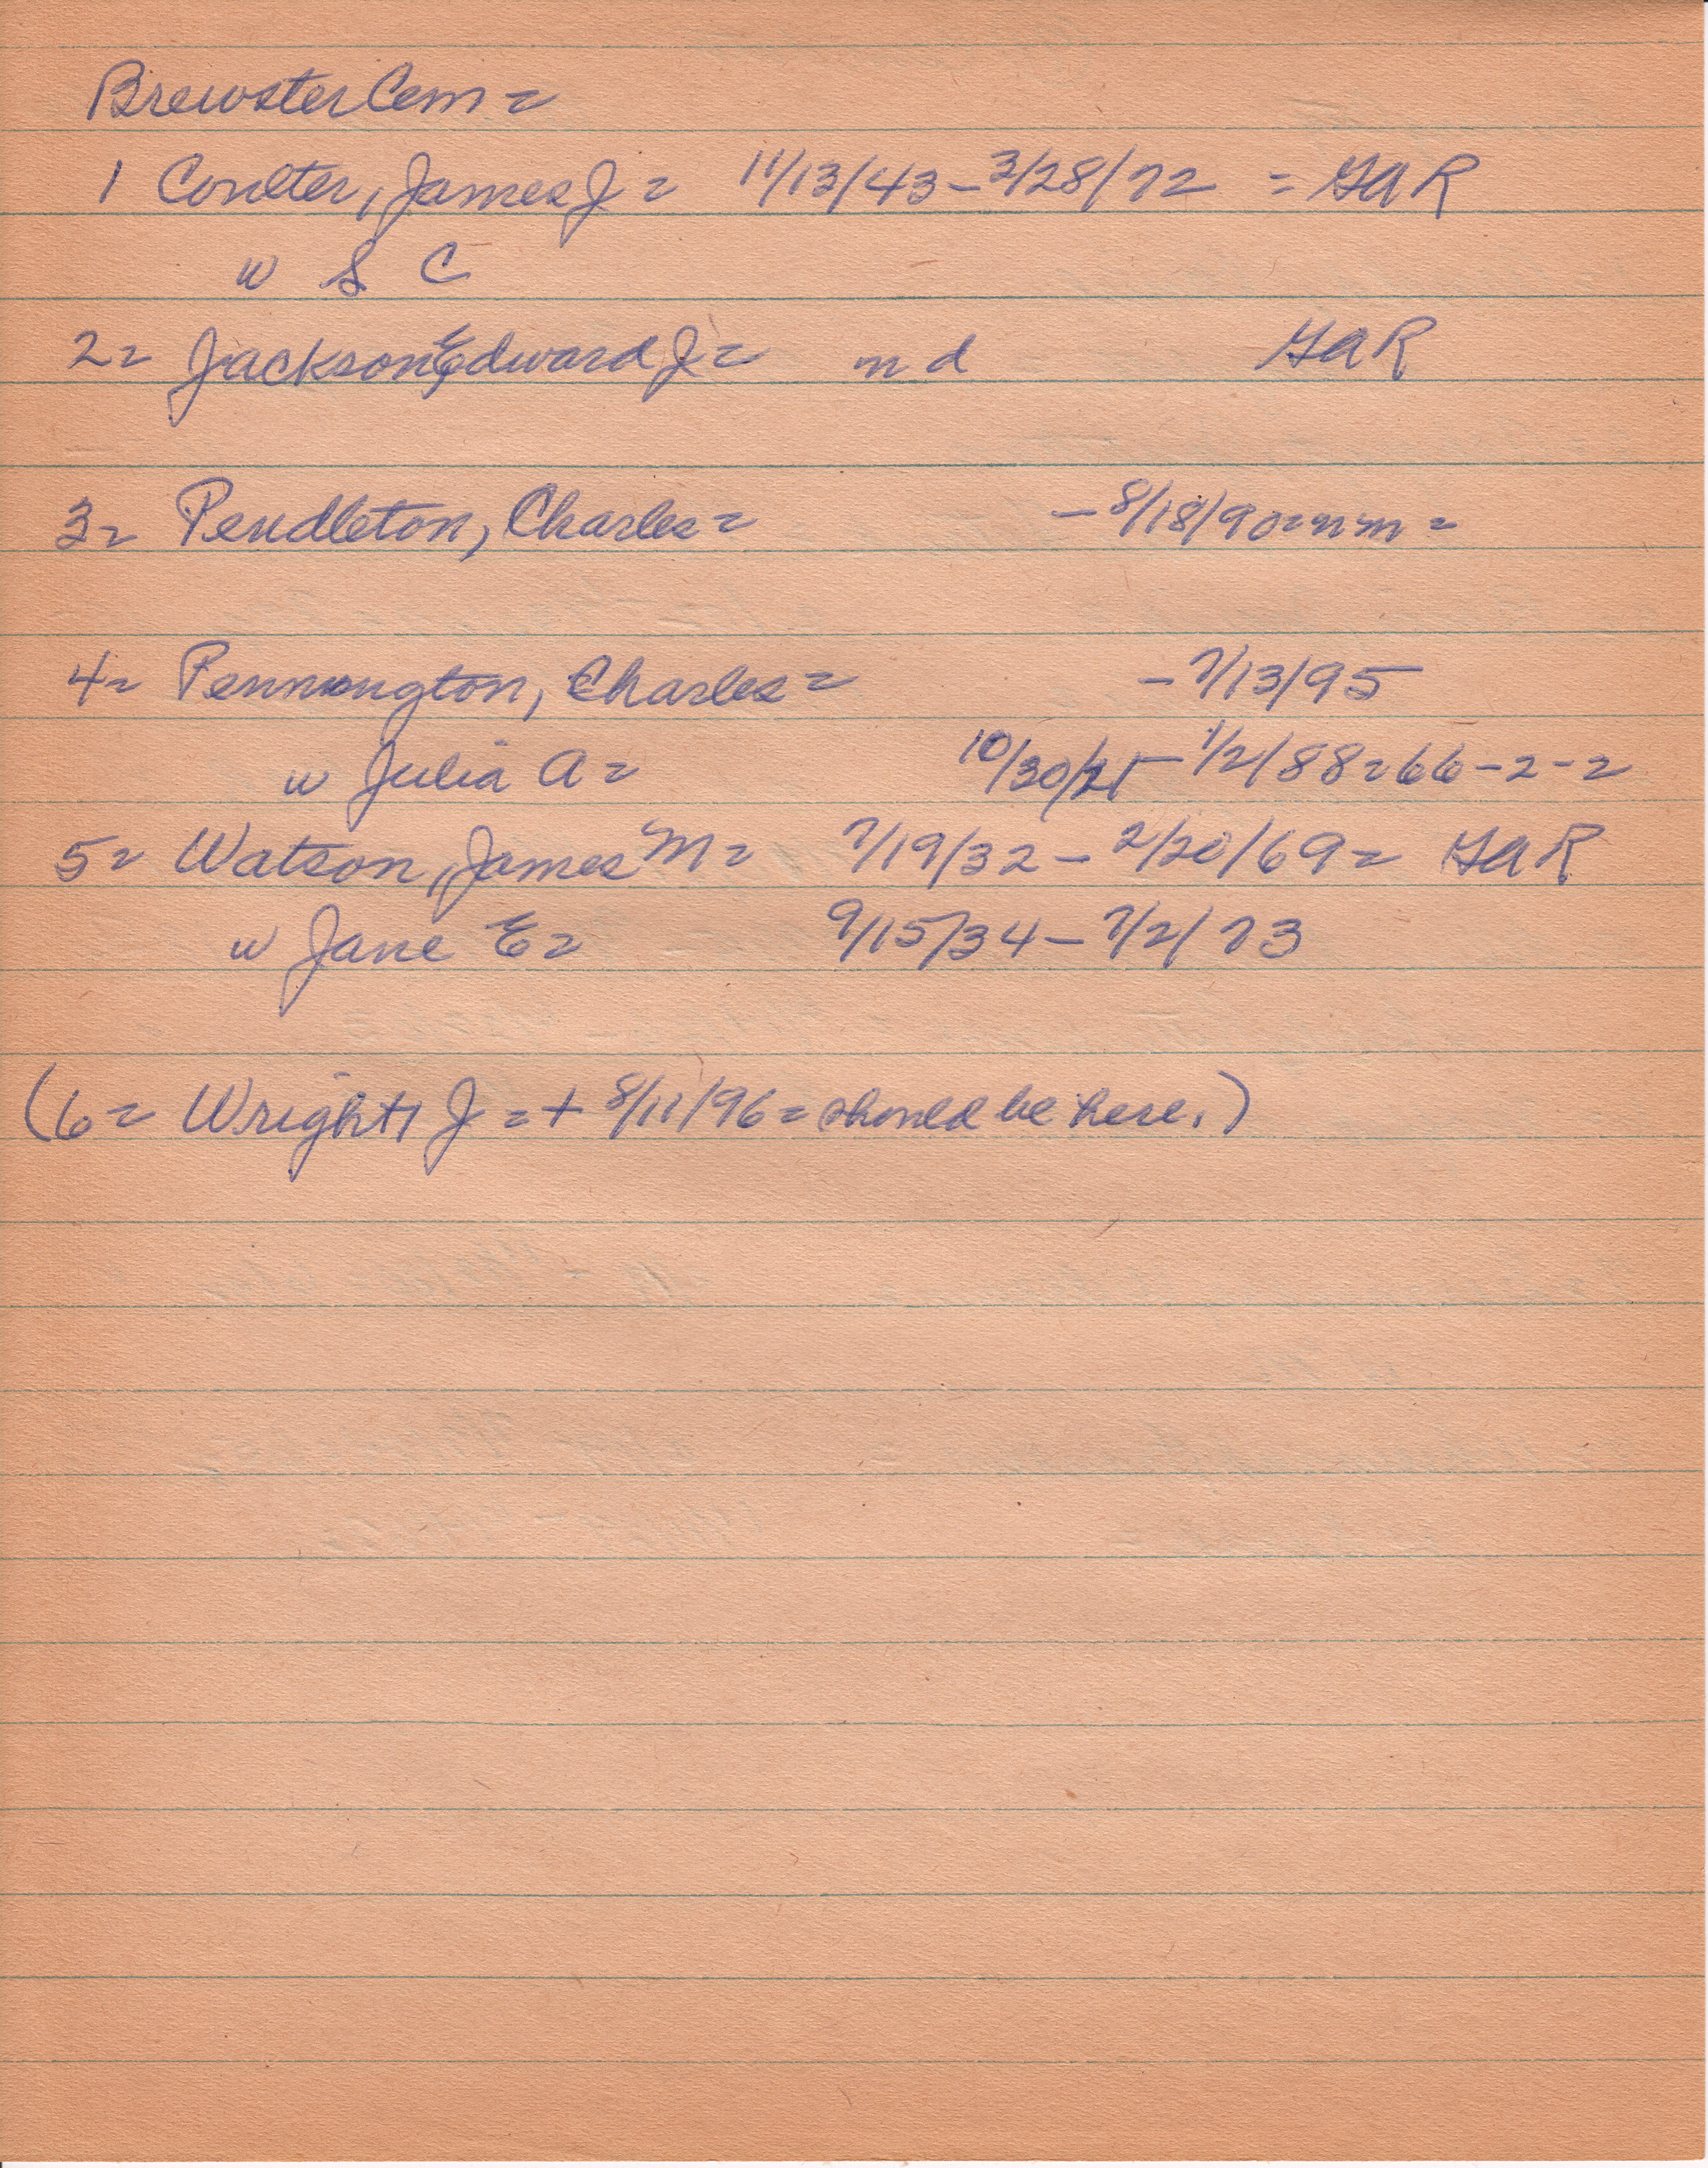 Brewster Cem =
1 Coulter, James J = 11/13/43 - 3/28/72 = GAR
w S C
2 = Jackson Edward J = n d GAR
3 = Pendleton, Charles = - 8/18/90 = nm =
4 = Pennington, Charles = - 7/13/95
w Julia A = 10/30/21 - 1/2/88 = 66-2-2
5 = Watson, James M = 7/19/32 - 2/20/69 = GAR
w Jane E = 9/15/34 - 7/2/73
(6 = Wright, J = + 8/11/96 = should be here.)